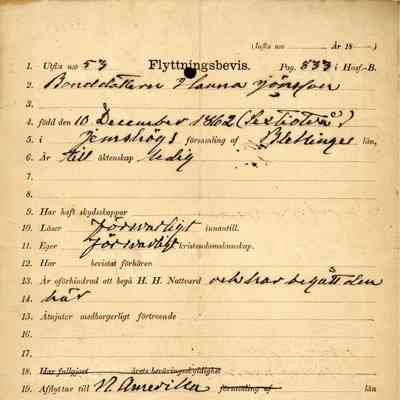 (Infls n:o ——— År 18——)
1. Utfls n:o 53 Flyttningsbevis. Pag. 533 i Husf.-B.
2. Bonddottern Hanna Jönsson
3.
4. född den 10 December 1862 (Sextiotvå)
5. i Jemshögs församling af Blekinge län,
6. Är till äktenskap ledig
7.
8.
9. Har haft skyddskoppor
10. Läser försvarligt innantill.
11. Eger försvarligt kristendomskunskap.
12. Har bevistat förhören
13. Är oförhindrad att begå H. H. Nattvard och har begått den
14. här
15. Åtnjuter medborgerligt förtroende
16.
17.
18. Har fullgjort årets beväringsskyldighet
19. Afflyttar till N. Amerika församling af län